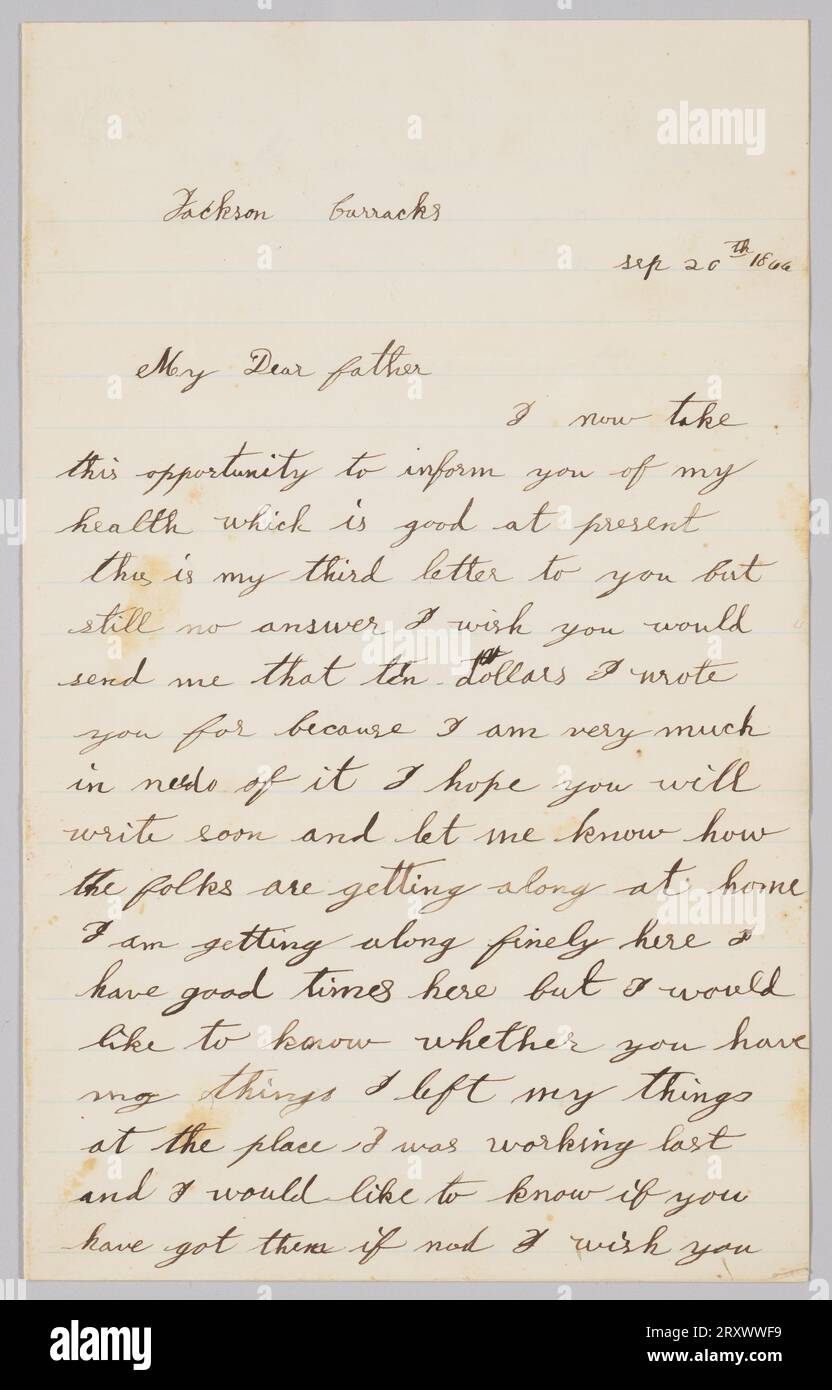 Jackson barracks
sep 20th 1866
My Dear father
I now take
this opportunity to inform you of my
health which is good at present
this is my third letter to you but
still no answer I wish you would
send me that ten dollars I wrote
you for because I am very much
in need of it I hope you will
write soon and let me know how
the folks are getting along at home
I am getting along finely here I
have good times here but I would
like to know whether you have
my things I left my things
at the place I was working last
and I would like to know if you
have got them if nod I wish you
alamy
Image ID: 2RXWWF9
www.alamy.com